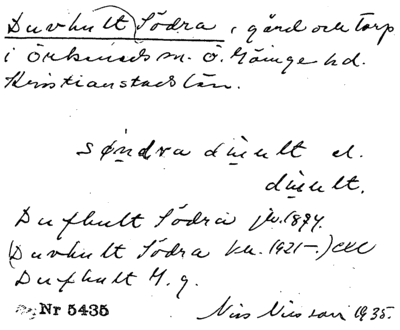 Duvhult Södra, gård och torp
i Örkeneds sn. Ö. Göinge hd.
Kristianstads län.
söndra
el.
Dufhult Södra jb. 1894.
(Duvhult Södra 1921-.) exc
Dufhult H. g.
Nr 5435
Nils Nilsson 1935.